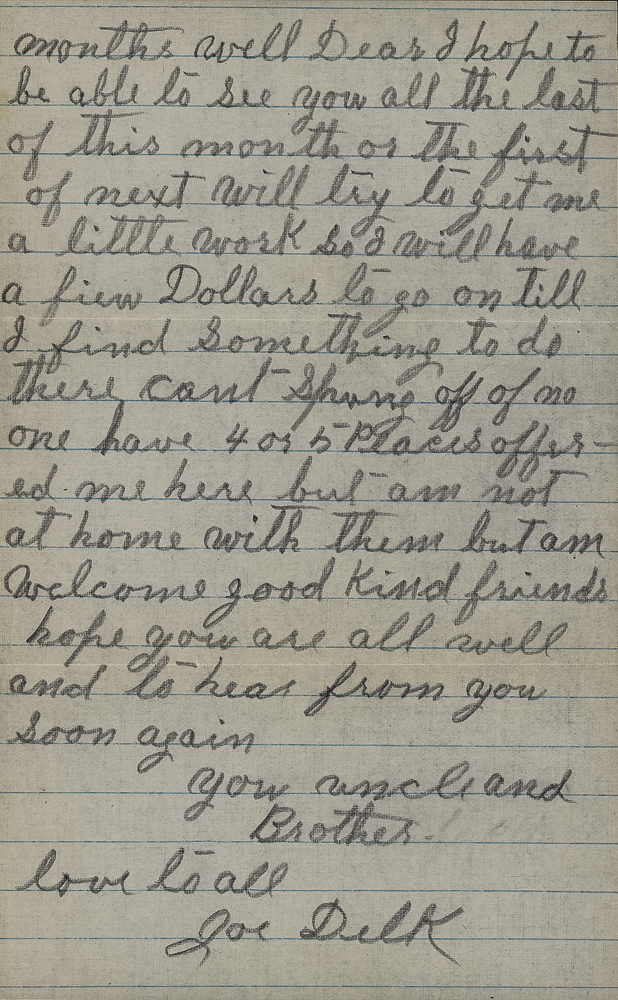 months well Dear I hope to
be able to see you all the last
of this month or the first
of next will try to get me
a little work so I will have
a fiew Dollars to go on till
I find Something to do
there cant Spung off of no
one have 4 or 5 Places offer-
ed me here but am not
at home with them but am
Welcome good Kind friends
hope you are all well
and to hear from you
Soon again
You uncle and
Brother
love to all
Joe Delk